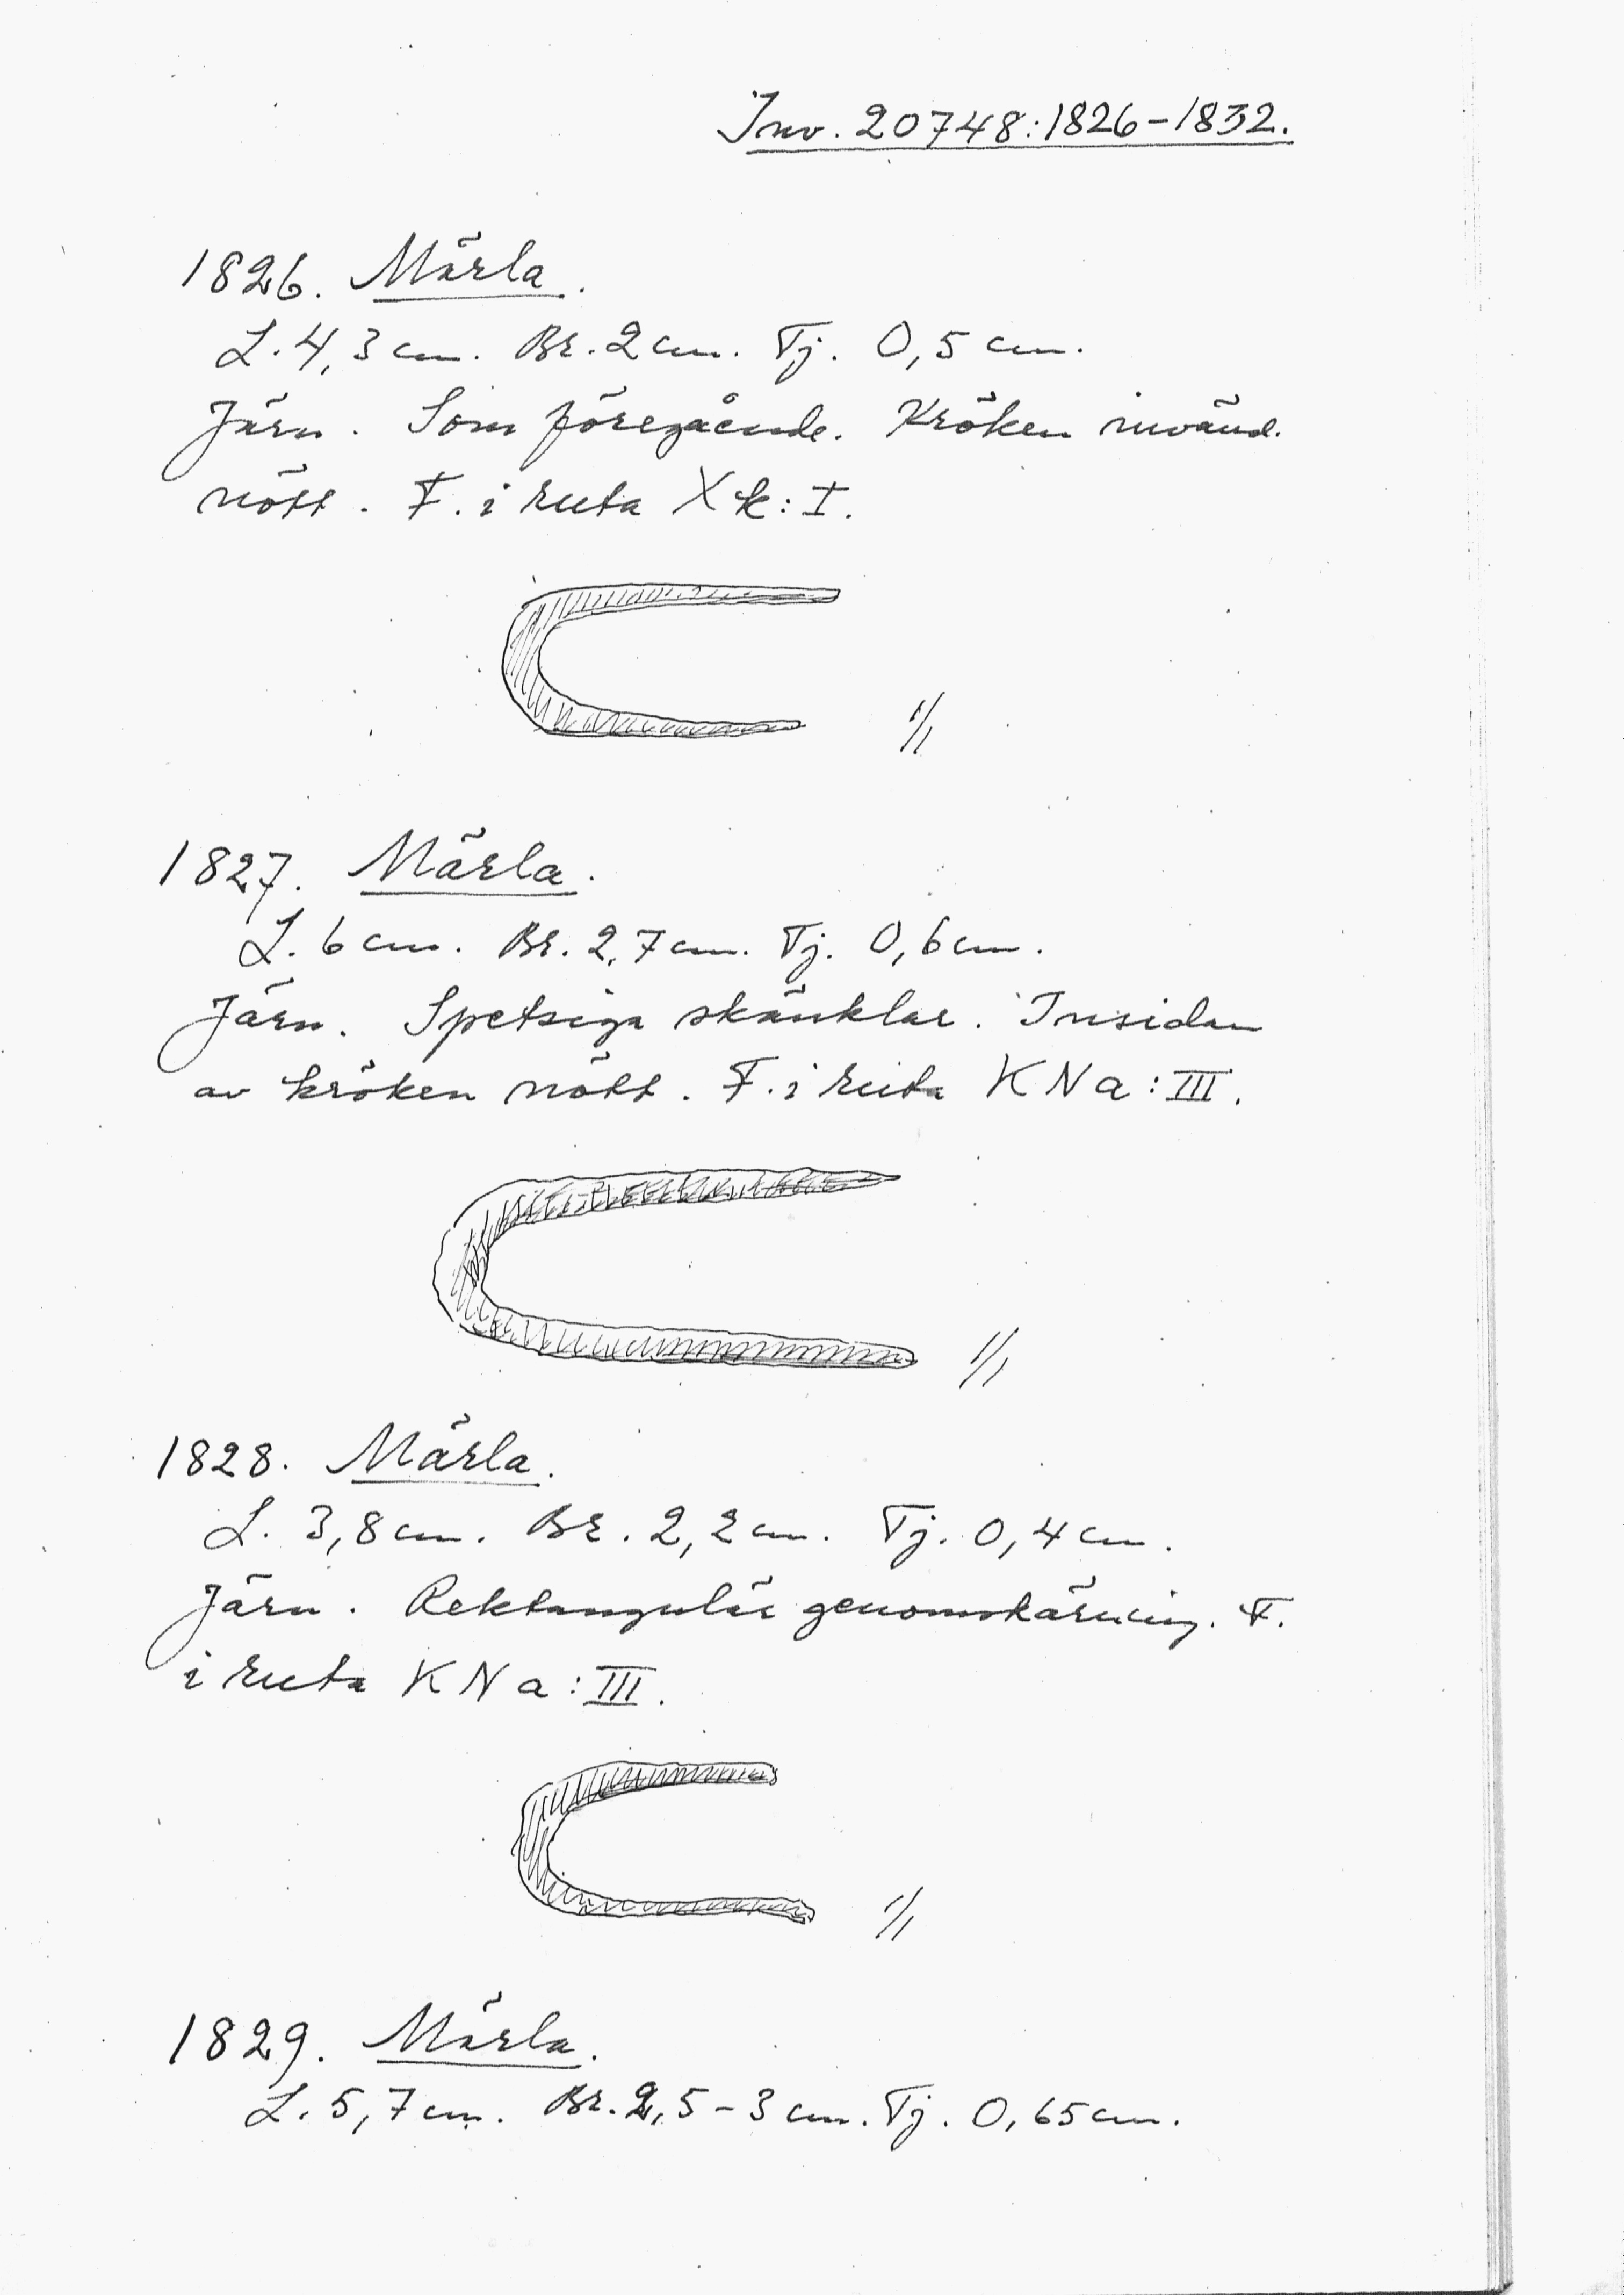 Inv. 20748:1826-1832.
1826. Märla.
L. 4,3 cm. Br. 2 cm. Tj. 0,5 cm.
Järn. Som föregående. Kröken invänd.
nött. F. i ruta X k:I.
1/1
1827. Märla.
L. 6 cm. Br. 2,7 cm. Tj. 0,6 cm.
Järn. Spetsiga skänklar. Insidan
av kröken nött. F. i ruta K N a:III.
1/1
1828. Märla.
L. 3,8 cm. Br. 2,2 cm. Tj. 0,4 cm.
Järn. Rektangulär genomskärning. F.
i ruta K N a:III.
1/1
1829. Märla.
L. 5,7 cm. Br. 2,5-3 cm. Tj. 0,65 cm.